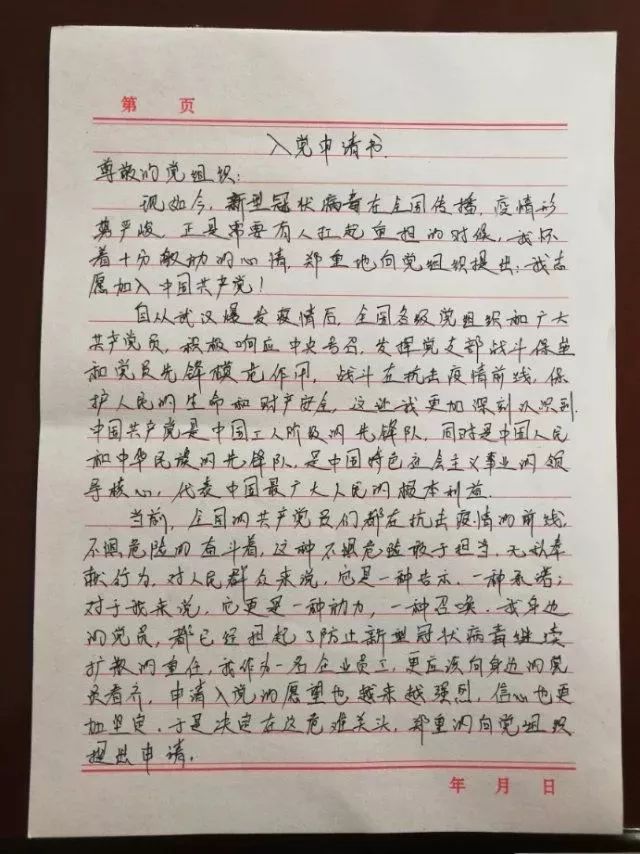 第 页
入党申请书
尊敬的党组织：
现如今，新型冠状病毒在全国传播，疫情形
势严峻，正是需要有人扛起重担的时候，我怀
着十分激动的心情，郑重地向党组织提出：我志
愿加入中国共产党！
自从武汉爆发疫情后，全国各级党组织和广大
共产党员，积极响应中央号召，发挥党支部战斗堡垒
和党员先锋模范作用，战斗在抗击疫情前线，保
护人民的生命和财产安全，这让我更加深刻认识到
中国共产党是中国工人阶级的先锋队，同时是中国人民
和中华民族的先锋队，是中国特色社会主义事业的领
导核心，代表中国最广大人民的根本利益。
当前，全国的共产党员们都在抗击疫情的前线，
不惧危险的奋斗着，这种不惧危险敢于担当、无私奉
献行为，对人民群众来说，它是一种告示、一种承诺；
对于我来说，它更是一种动力，一种召唤。我身边
的党员，都已经担起了防止新型冠状病毒继续
扩散的重任，我作为一名企业员工，更应该向身边的党
员看齐，申请入党的愿望也越来越强烈，信心也更
加坚定。于是决定在这危难关头，郑重的向党组织
提出申请。
年 月 日